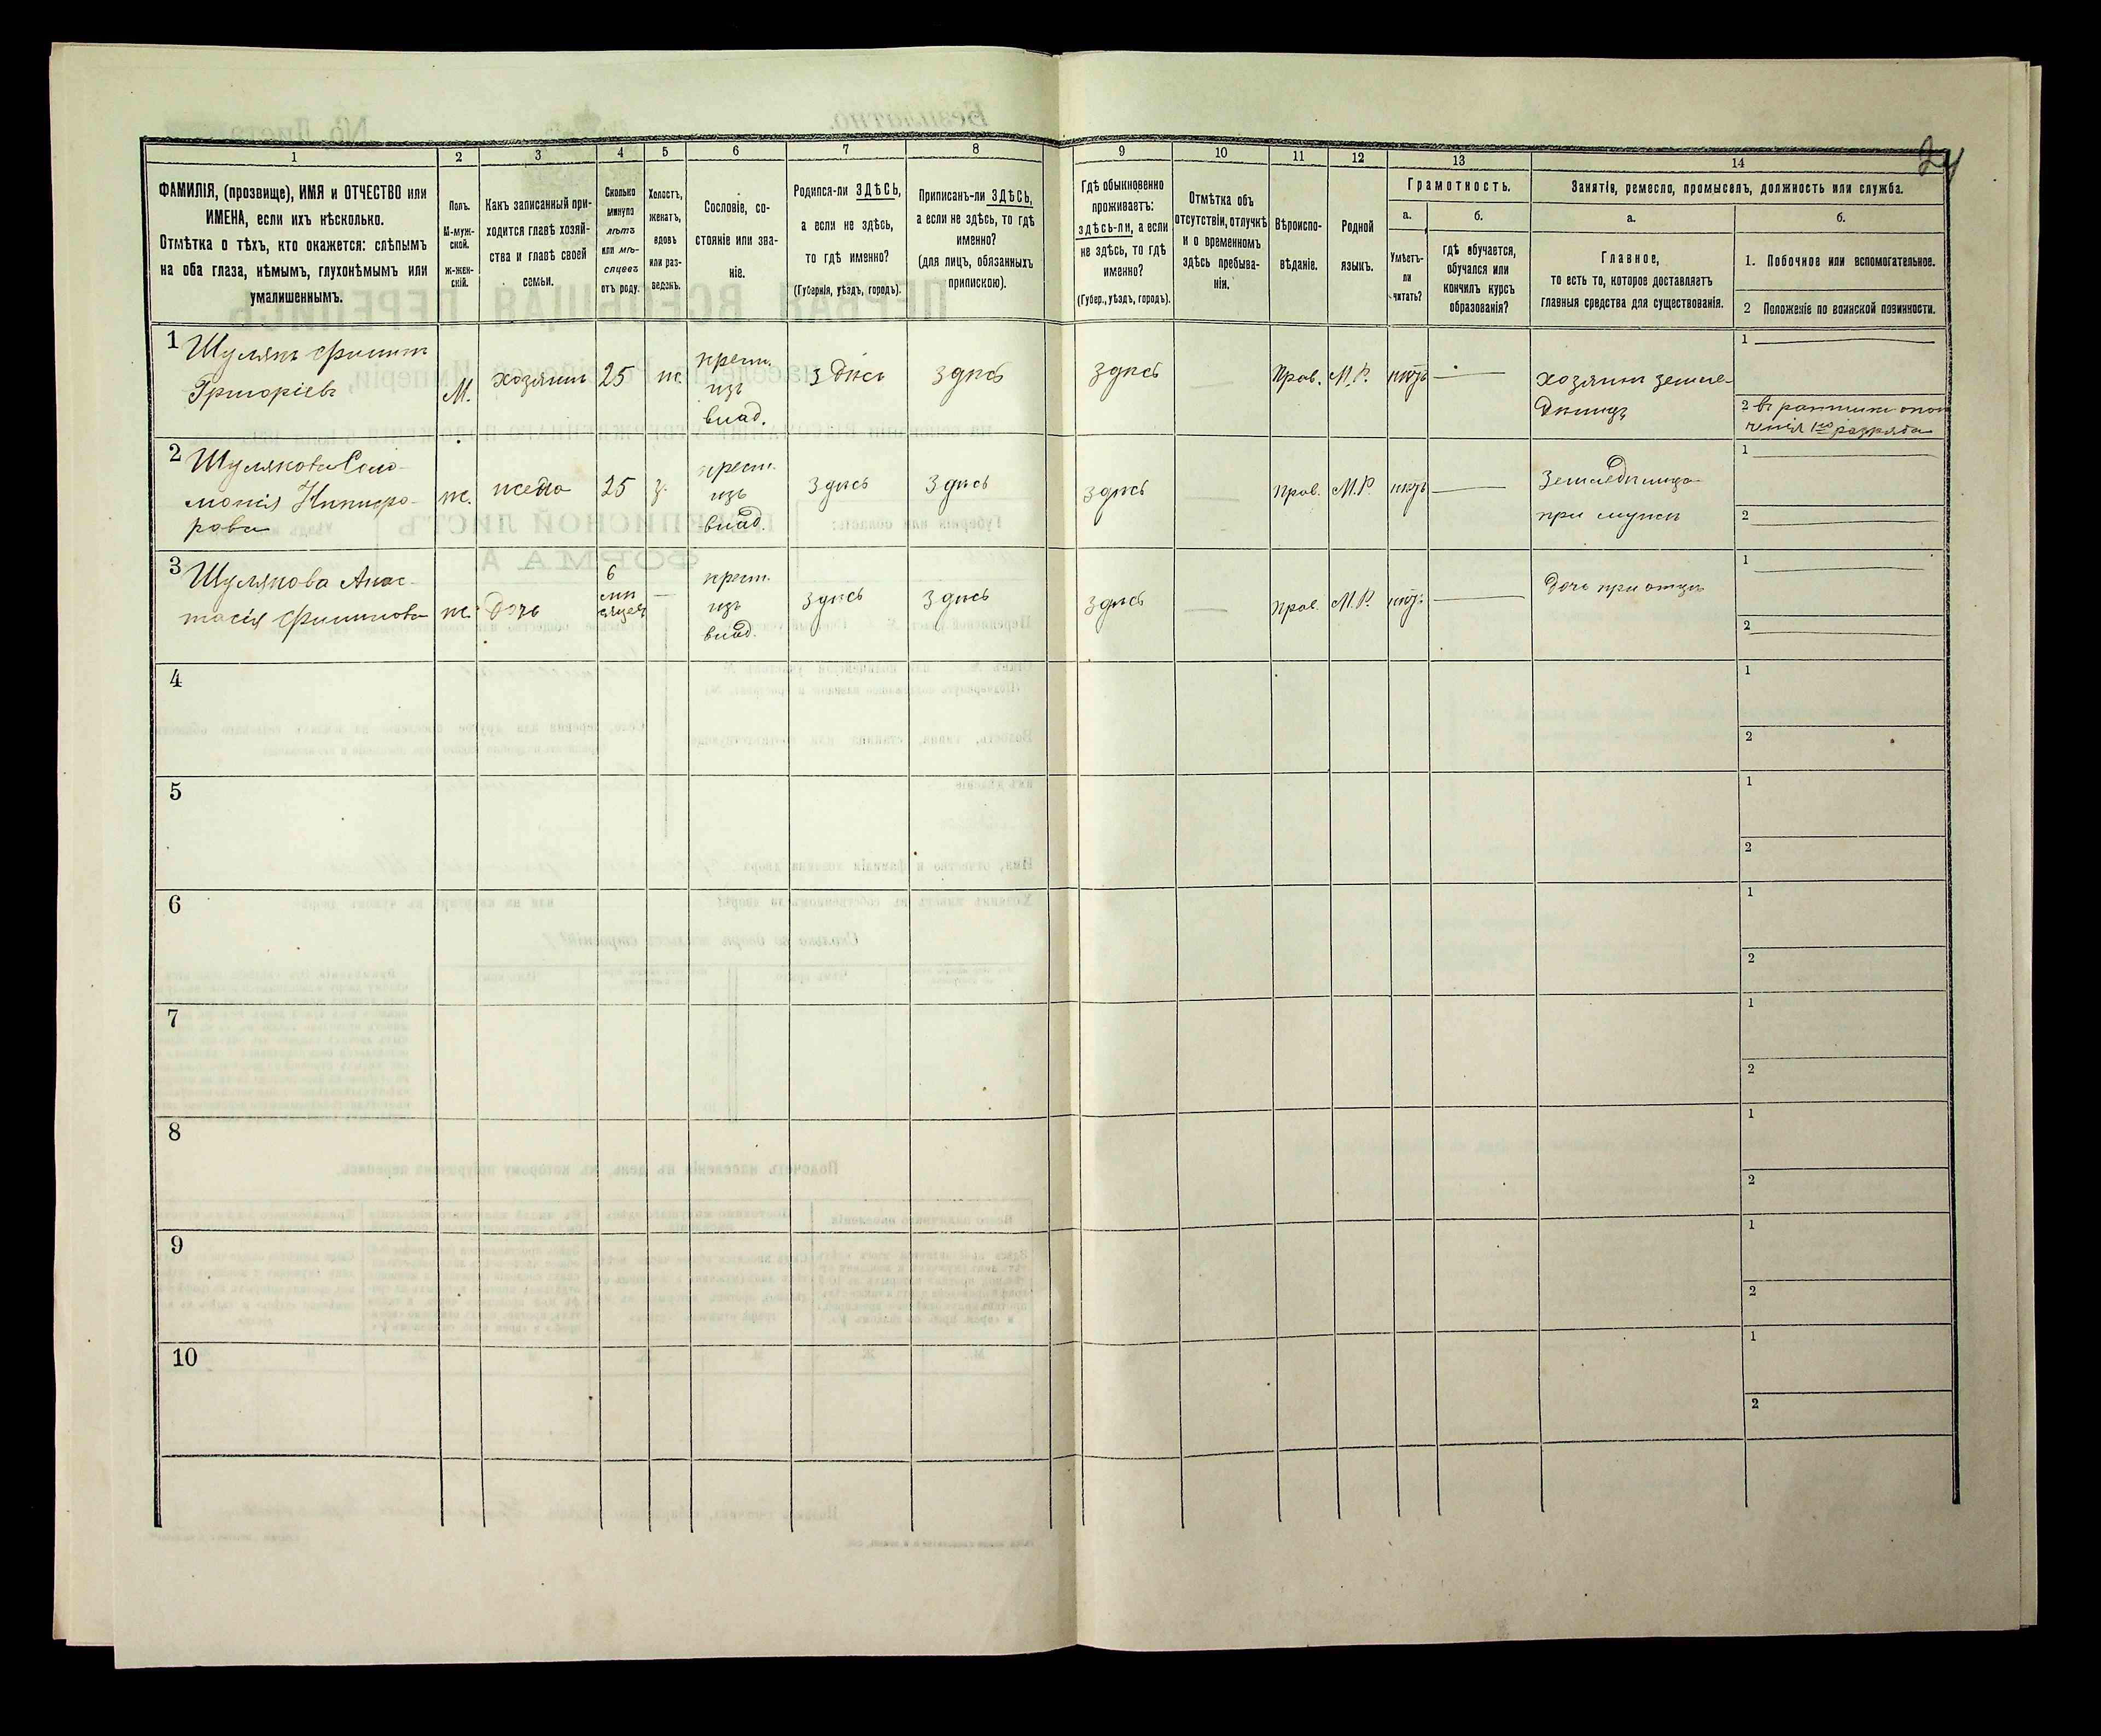 24
1
2
3
4
5
6
7
8
9
10
11
12
13
14
ФАМИЛІЯ, (прозвище), ИМЯ и ОТЧЕСТВО или
ИМЕНА, если ихъ нѣсколько.
Отмѣтка о тѣхъ, кто окажется: слѣпымъ
на оба глаза, нѣмымъ, глухонѣмымъ или
умалишеннымъ.
Полъ.
М-муж-
ской.
ж-жен-
скій.
Какъ записанный при-
ходится главѣ хозяй-
ства и главѣ своей
семьи.
Сколько
минуло
лѣтъ
или мѣ-
сяцевъ
отъ роду.
Холостъ,
женатъ,
вдовъ
или раз-
веденъ.
Сословіе, со-
стояніе или зва-
ніе.
Родился-ли ЗДѢСЬ,
а если не здѣсь,
то гдѣ именно?
(Губернія, уѣздъ, городъ).
Приписанъ-ли ЗДѢСЬ,
а если не здѣсь, то гдѣ
именно?
(для лицъ, обязанныхъ
припискою).
Гдѣ обыкновенно
проживаетъ:
здѣсь-ли, а если
не здѣсь, то гдѣ
именно?
(Губер., уѣздъ, городъ).
Отмѣтка объ
отсутствіи, отлучкѣ
и о временномъ
здѣсь пребыва-
ніи.
Вѣроиспо-
вѣданіе.
Родной
языкъ.
Грамотность.
а.
Умѣетъ-
ли
читать?
б.
гдѣ обучается,
обучался или
кончилъ курсъ
образованія?
Занятіе, ремесло, промыселъ, должность или служба.
а.
Главное,
то есть то, которое доставляетъ
главныя средства для существованія.
б.
1. Побочное или вспомогательное.
2 Положеніе по воинской повинности.
1 Шулякъ Филипъ
Григоріевъ
М.
хозяинъ
25
ж.
крест.
изъ
влад.
Здѣсь
Здѣсь
Здѣсь
Прав.
М.Р.
нѣтъ
хозяинъ земле-
дѣлецъ
1
2 въ ратники опол
ченія 1го разряда
2 Шулякова Соло-
монія Никифо-
рова
ж.
жена
25
з.
крест.
изъ
влад.
Здѣсь
Здѣсь
Здѣсь
Прав.
М.Р.
нѣтъ
Земледѣлица
при мужѣ
1
2
3 Шулякова Анас-
тасія Филипова
ж.
Дочь
6
мѣ
сяцев
крест.
изъ
влад.
Здѣсь
Здѣсь
Здѣсь
Прав.
М.Р.
нѣтъ
Дочь при отцѣ
1
2
4
1
2
5
1
2
6
1
2
7
1
2
8
1
2
9
1
2
10
1
2